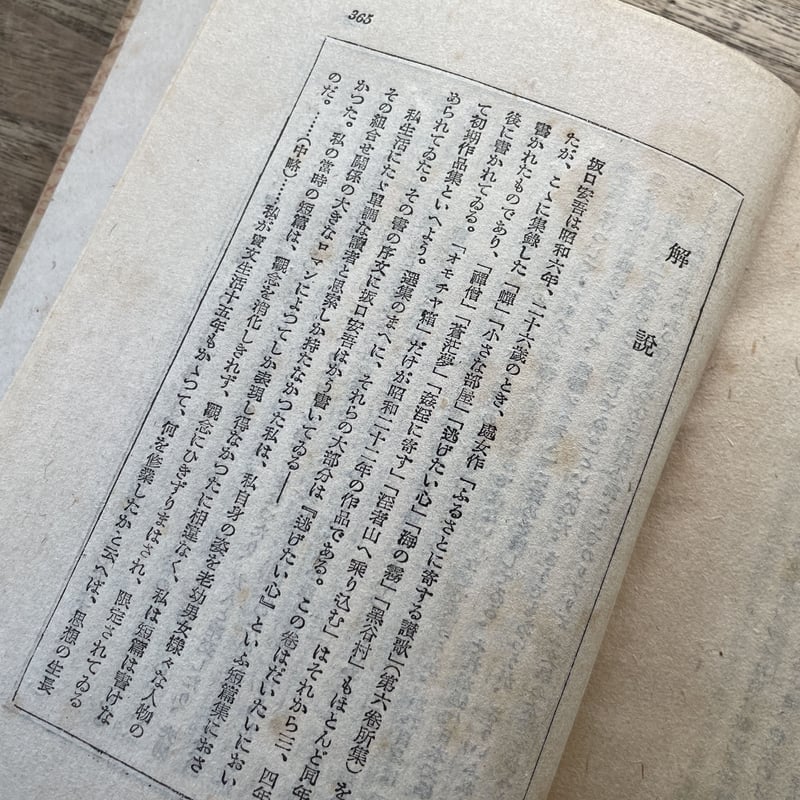 365
解說
坂口安吾は昭和六年、二十六歲のとき、處女作「ふるさとに寄する讃歌」(第六卷所集)を
たが、こゝに集錄した「蟬」「小さな部屋」「逃げたい心」「海の霧」「黑谷村」もほとんど同年
書かれたものであり、「禪僧」「蒼茫夢」「姦淫に寄す」「淫者山へ乘り込む」はそれから三、四年
後に書かれてゐる。「オモチヤ箱」だけが昭和二十二年の作品である。この卷はだいたいにおい
て初期作品集といへよう。選集のまへに、それらの大部分は『逃げたい心』といふ短篇集におさ
められてゐた。その書の序文に坂口安吾はかう書いてゐる――
私生活にたゞ單調な讀者と思索しか持たなかつた私は、私自身の姿を老幼男女樣々な人物の
その組合せ關係の大きなロマンによつてしか表現し得なかつたに相違なく、私は短篇は書けな
かつた。私の當時の短篇は、觀念を消化しきれず、觀念にひきずりまはされ、限定されてゐる
のだ。……(中略)……私が賣文生活十五年もかゝつて、何を修業したかと云へば、思想の生長